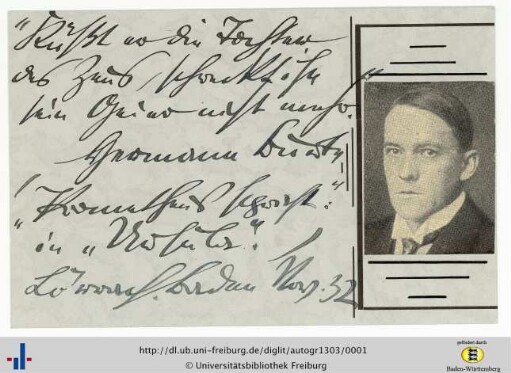 "Küßt er die Tochter
des Zeus, schreckt ihn
sein Geier nicht mehr."
Hermann Burte,
"Prometheus
in "Ursula".
Lörrach. Baden Nov. 32
http://dl.ub.uni-freiburg.de/diglit/autogr1303/0001
© Universitätsbibliothek Freiburg
gefördert durch
Baden-Württemberg